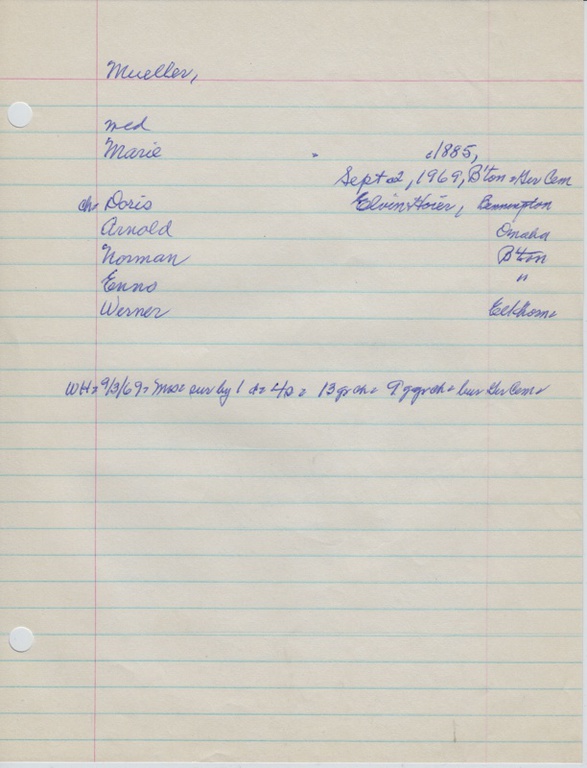 Mueller,
med
Marie . c1885,
Sept 2, 1969, B'ton Ger Cem
ch. Doris Elvin Hoier, Bennington
Arnold Omaha
Norman B'ton
Enno "
Werner Elkhorn
WH 9/3/69 Mrs sur by 1 d 4 s 13 gr ch 9 ggrch bur Ger Cem